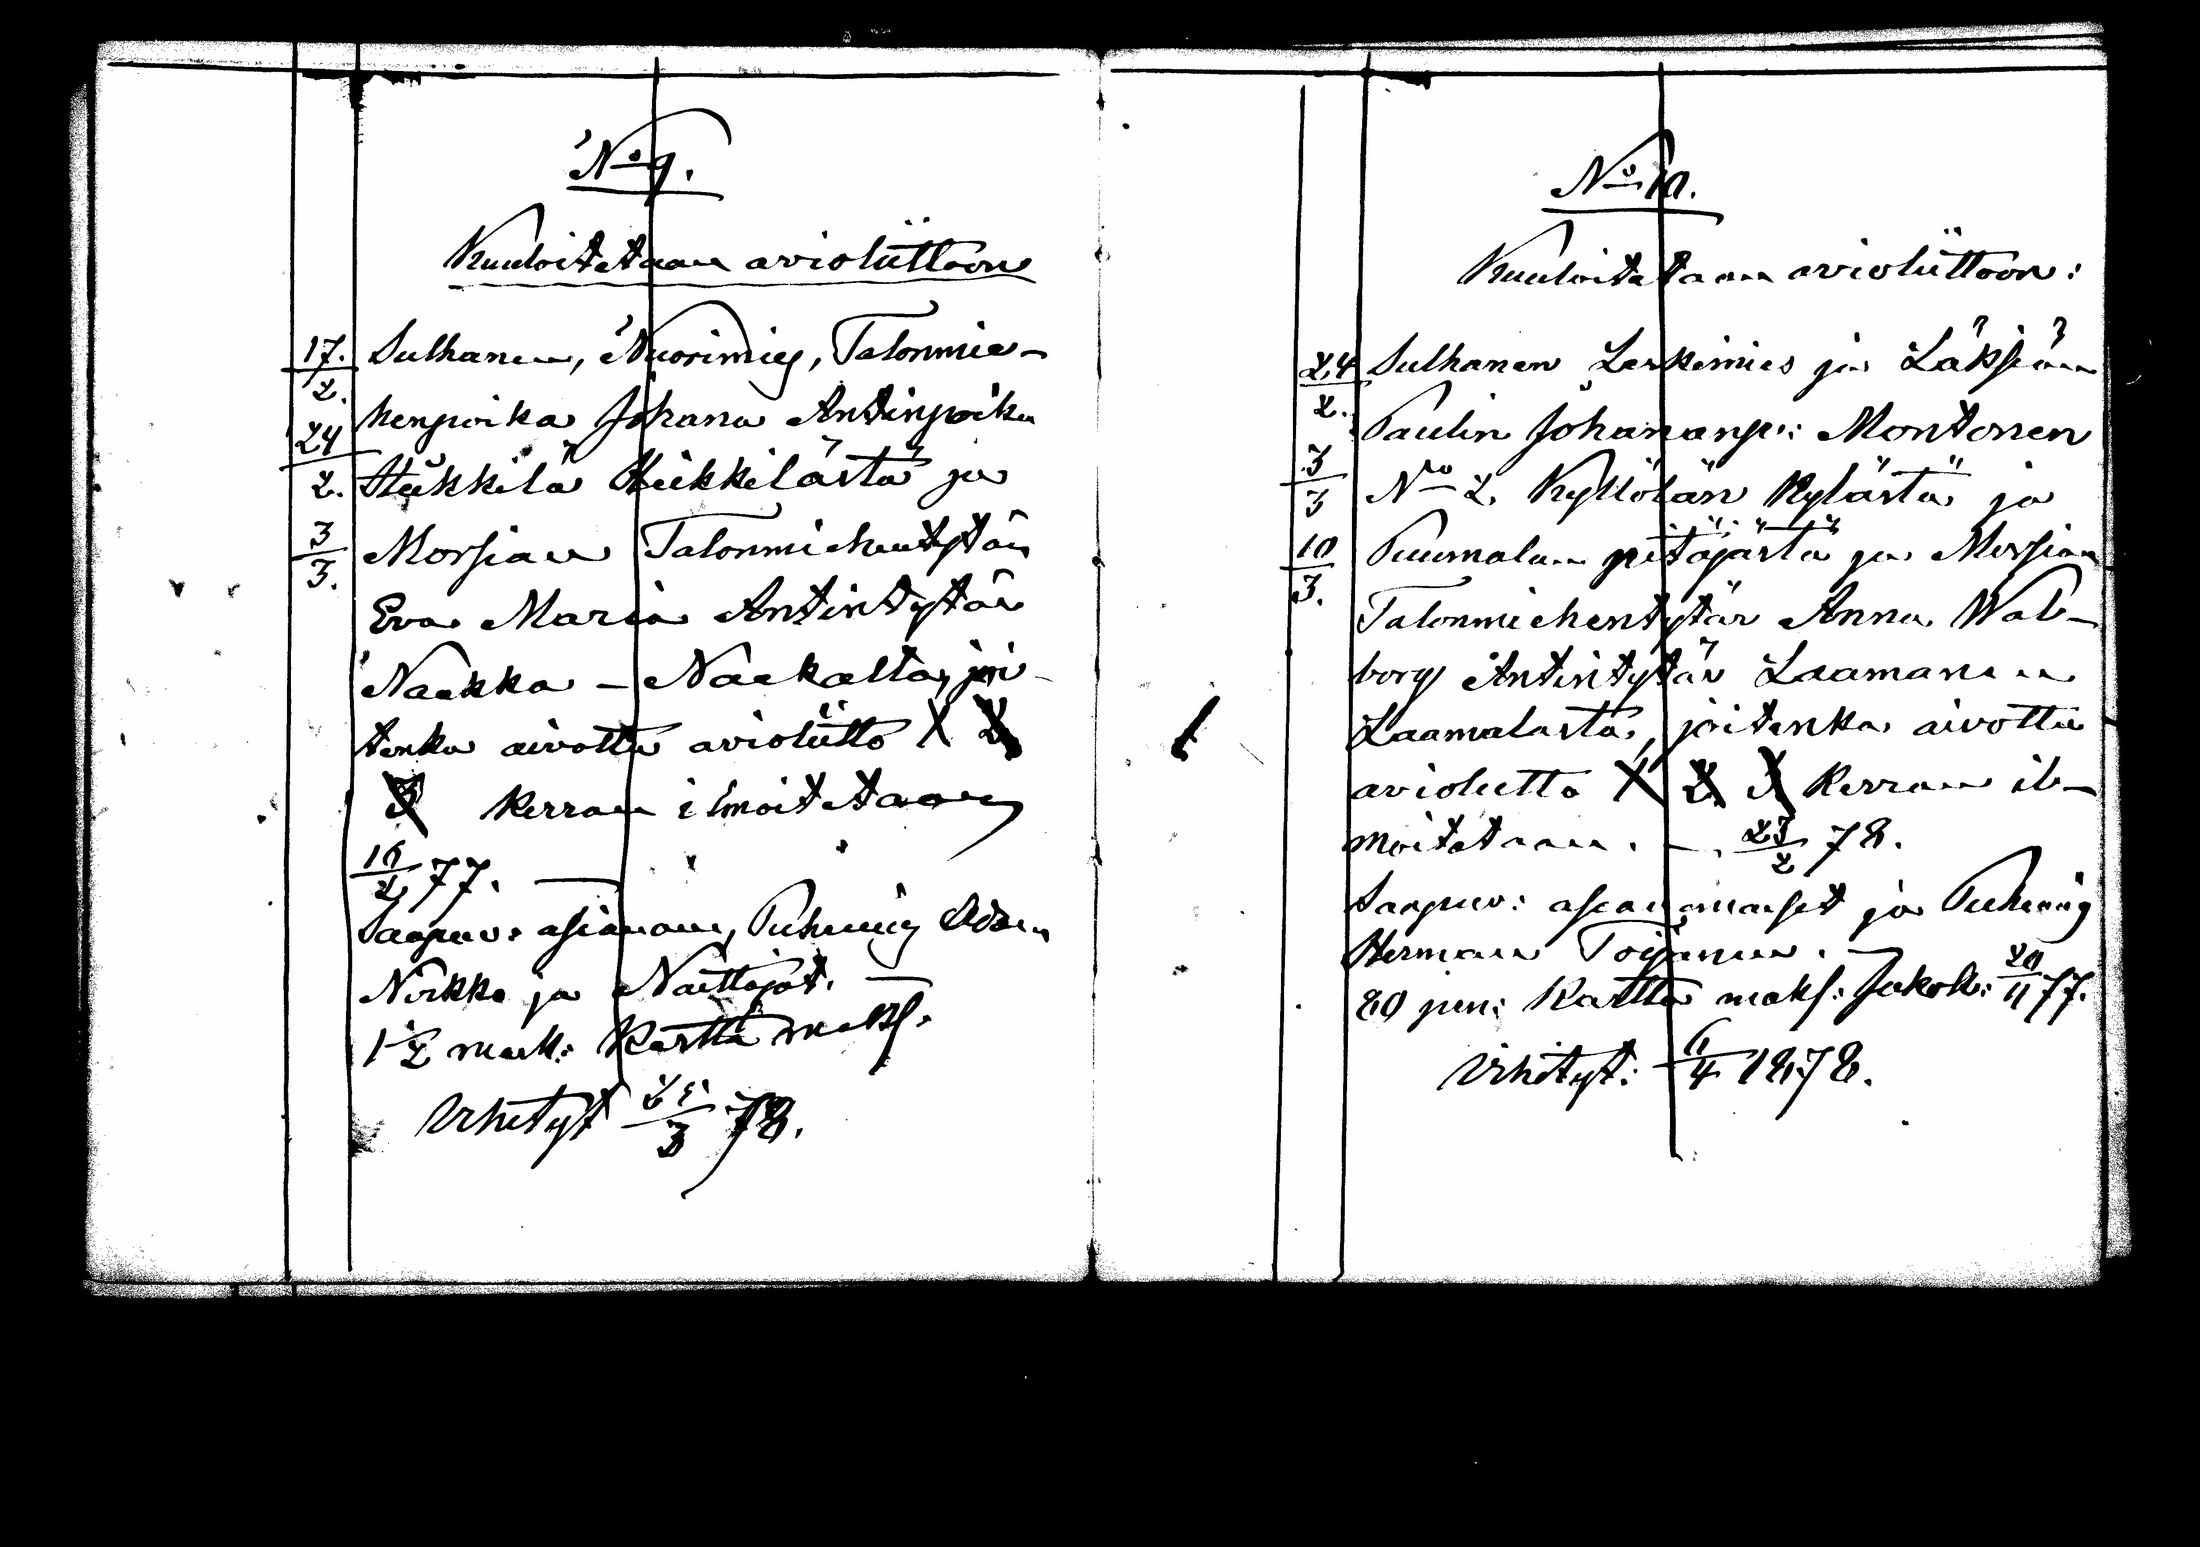 No 9.
Kuuloitetaan avioliittoon
17./2. Sulhanen, Nuorimies, Talonmie-
henpoika Johana Antinpoika
24/2. Hiikkilä Hiikkilästä ja
3/3. Morsian Talonmiehentytär
Eva Maria Antintytär
Naakka – Naakalta, joi-
tenka aivottu avioliitto 1 2
3 kerran ilmoitetaan
16/2 77. —
Saapuv: asianom, Puhemies Adam
Nokka ja Naittajat. —
1 1/2 mark: Kartta maks.
Vihityt 25/3 78.
No 10.
Kuuloitetaan avioliittoon:
24/2. Sulhanen Leskimies ja Läksiän
Paulin Johananp: Montonen
3/3 No 2. Kyllölän Kylästä ja
10/3. Puumalan pitäjästä ja Morsian
Talonmiehentytär Anna Wal-
borg Antintytär Laamanen
Laamalasta, joitenka aivottu
avioliitto 1 2 3 kerran il-
moitetaan. — 23/2 78.
Saapuv: asianomaiset ja Puhemies
Herman Toijanen. —
80 pen: Kartta maks: Jakok: 20/11 77.
Vihityt: 6/4 1878.